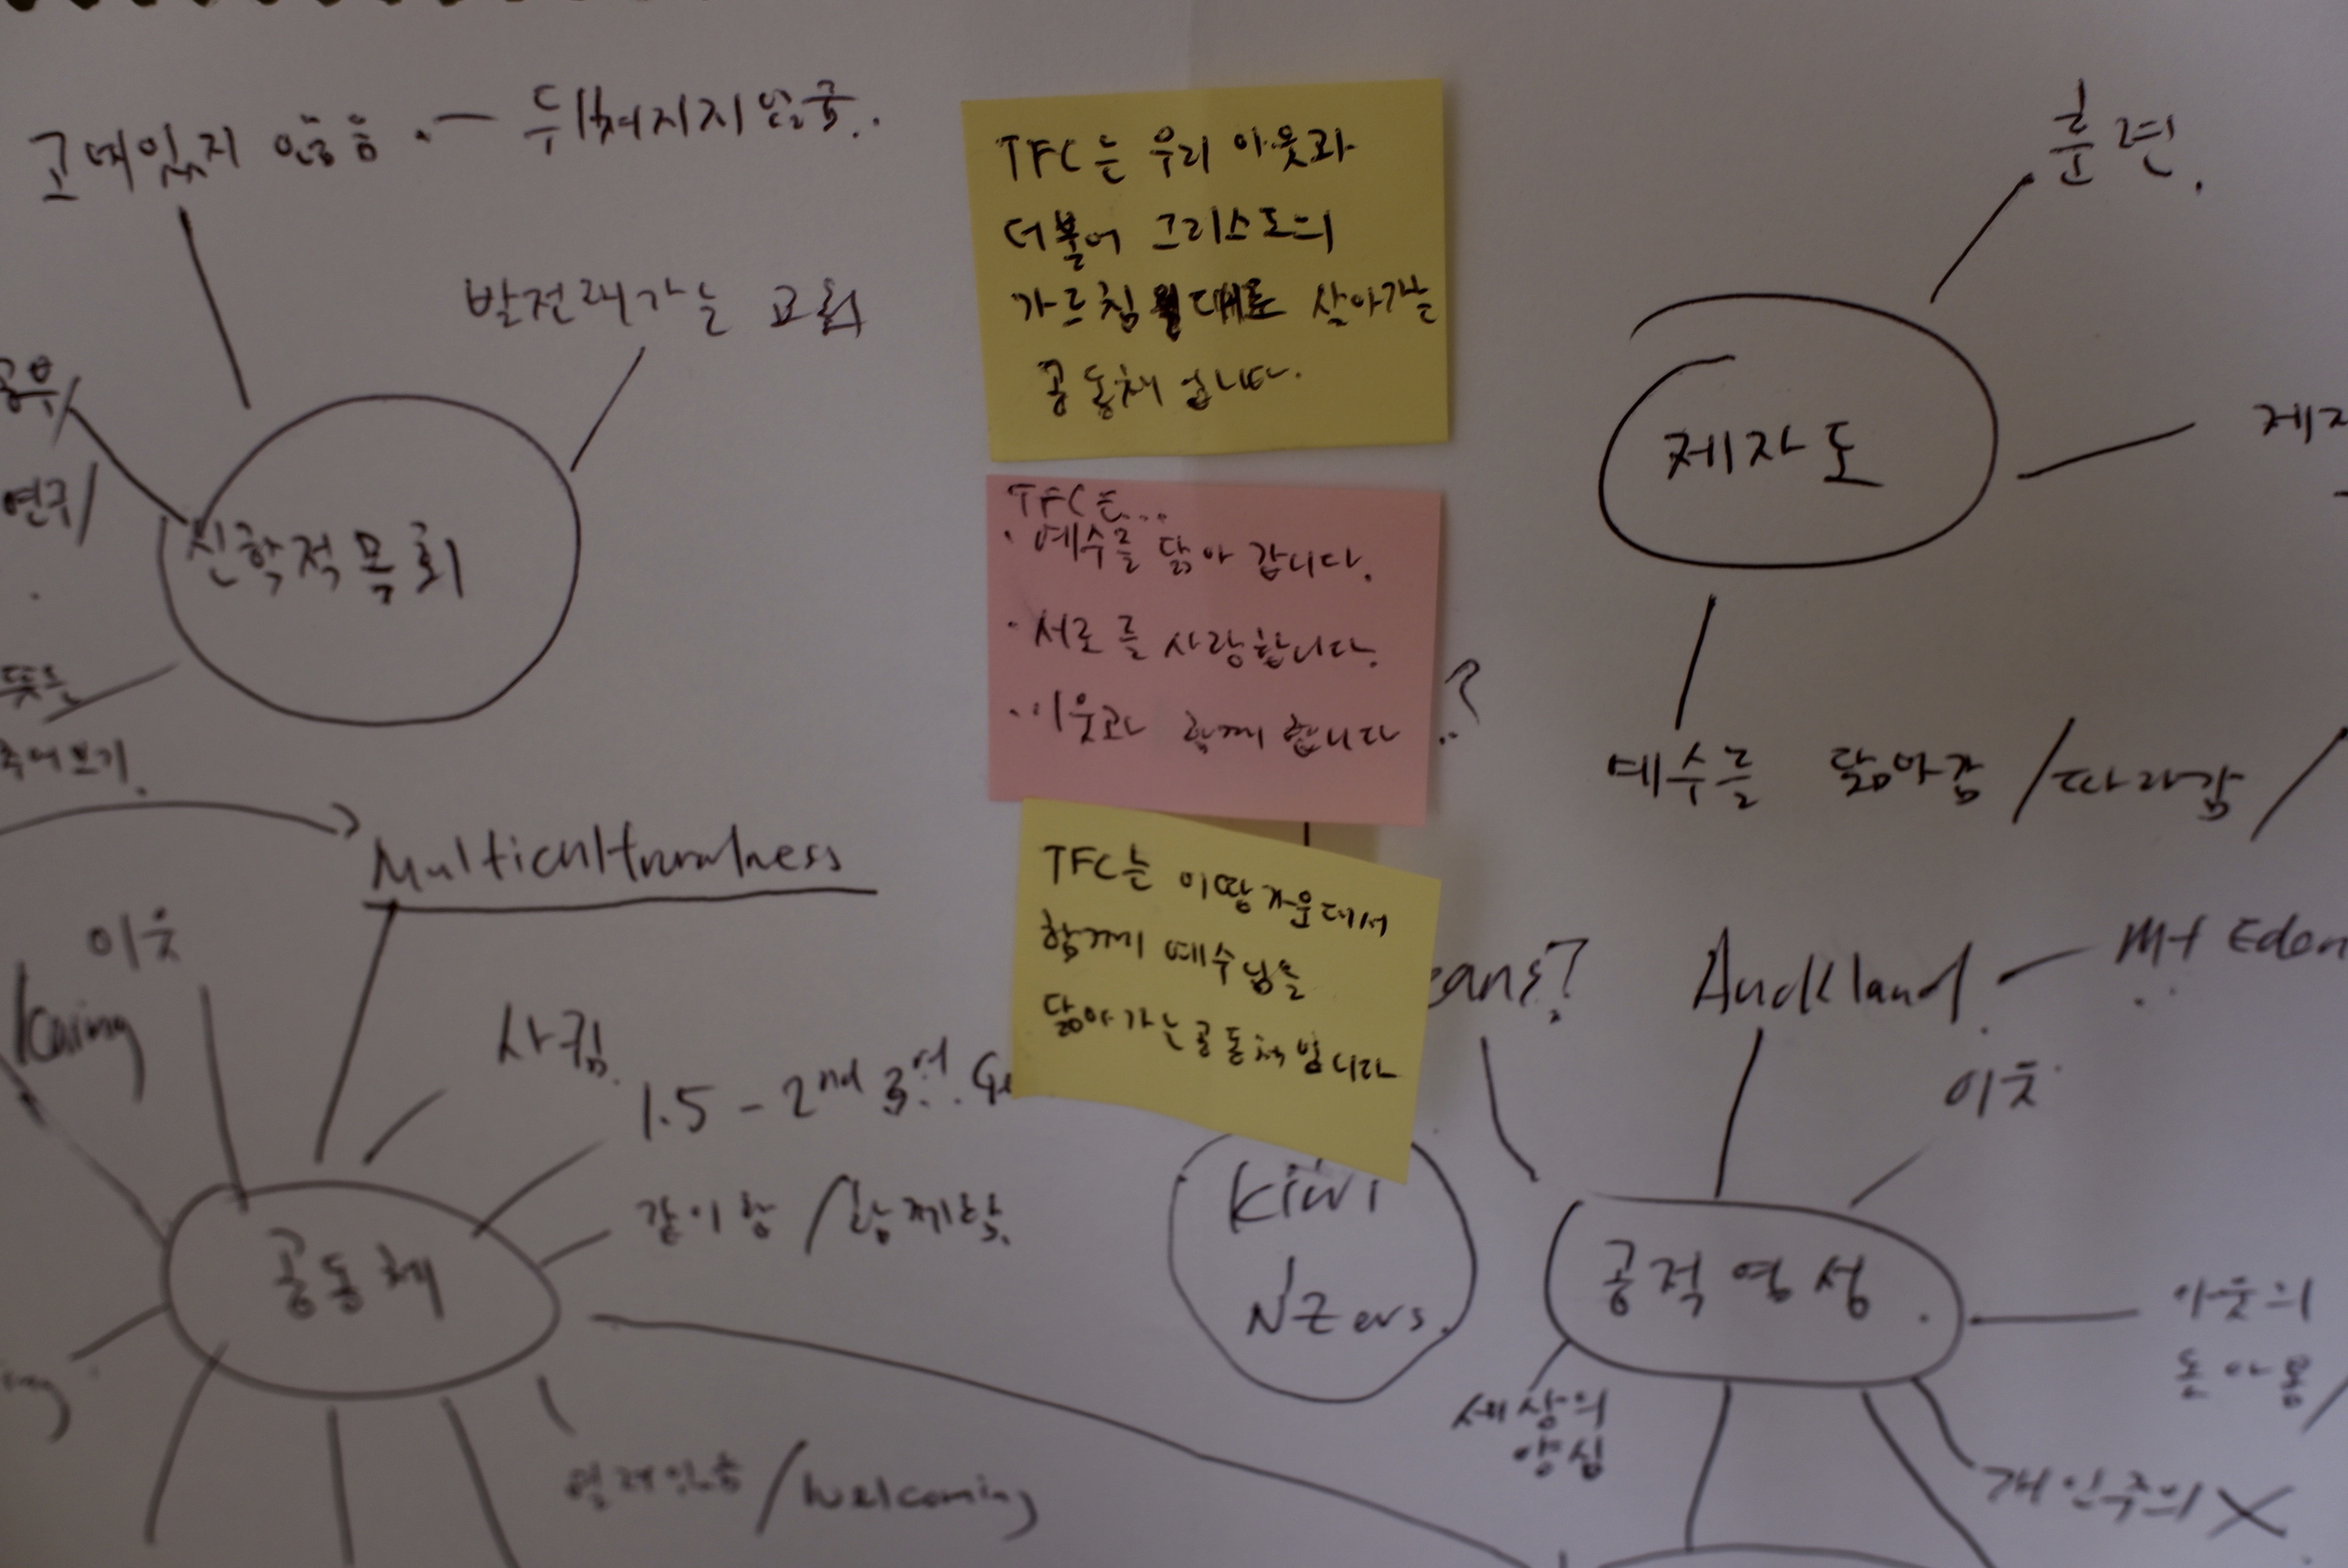 고여있지 않음 — 뒤쳐지지 않음..
발전해가는 교회
공부/
연구/
신학적 목회
TFC는 우리 이웃과
더불어 그리스도의
가르침 대로 살아가는
공동체 입니다.
TFC는...
· 예수를 닮아 갑니다.
· 서로를 사랑합니다.
· 이웃과 함께 합니다 ..?
TFC는 이땅 가운데서
함께 예수님을
닮아가는 공동체 입니다
훈련.
제자도
예수를 닮아감 / 따라감 /
Multiculturalness
이웃
/caring
사귐.
1.5 - 2nd 3rd. Ge
공동체
열려있음 / welcoming
Kiwi
NZers.
eans?
Auckland. — Mt Eden
이웃
공적영성.
이웃의
돌아봄 /
세상의
양심
개인주의 X